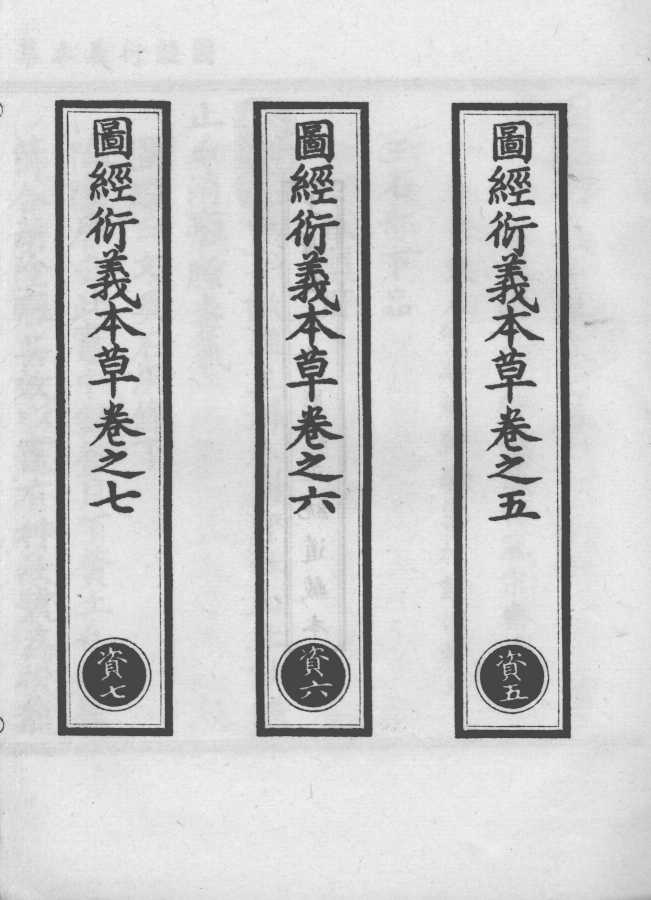 圖經衍義本草卷之五
資五
圖經衍義本草卷之六
資六
圖經衍義本草卷之七
資七